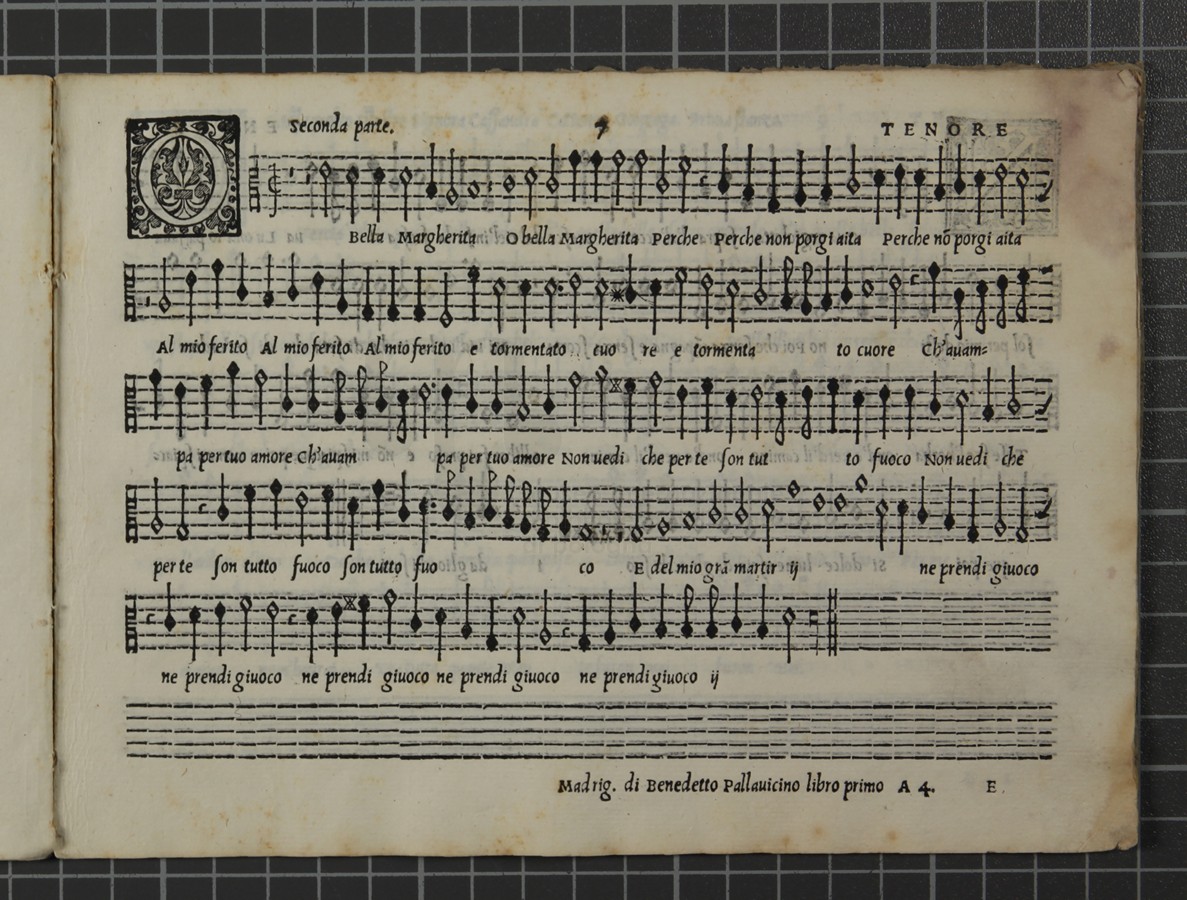 Seconda parte. 7 TENORE
O Bella Margherita O bella Margherita Perche Perche non porgi aita Perche nõ porgi aita
Al mio ferito Al mio ferito Al mio ferito e tormentato cuo re e tormenta to cuore Ch'auam=
pa per tuo amore Ch'auam pa per tuo amore Non uedi che per te son tut to fuoco Non uedi che
per te son tutto fuoco son tutto fuo co E del mio grã martir ij ne prendi giuoco
ne prendi giuoco ne prendi giuoco ne prendi giuoco ne prendi giuoco ij
Madrig. di Benedetto Pallauicino libro primo A 4. E